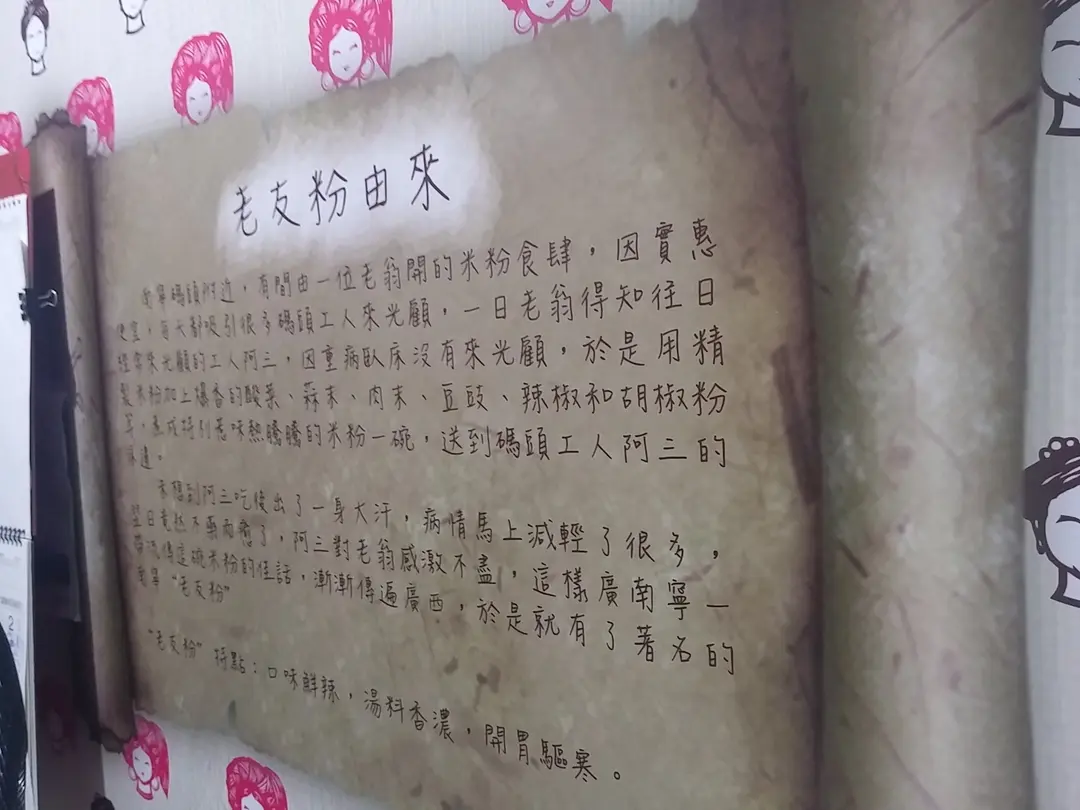 老友粉由來
南寧碼頭附近，有間由一位老翁開的米粉食肆，因實惠
便宜，每天都吸引很多碼頭工人來光顧，一日老翁得知往日
經常來光顧的工人阿三，因重病臥床沒有來光顧，於是用精
製米粉加上爆香的酸菜、蒜末、肉末、豆豉、辣椒和胡椒粉
等，煮成特別惹味熱騰騰的米粉一碗，送到碼頭工人阿三的
床邊。
未想到阿三吃後出了一身大汗，病情馬上減輕了很多，
翌日竟然不藥而癒了，阿三對老翁感激不盡，這樣廣南寧一
帶流傳這碗米粉的佳話，漸漸傳遍廣西，於是就有了著名的
南寧“老友粉”
“老友粉”特點：口味鮮辣，湯料香濃，開胃驅寒。
2